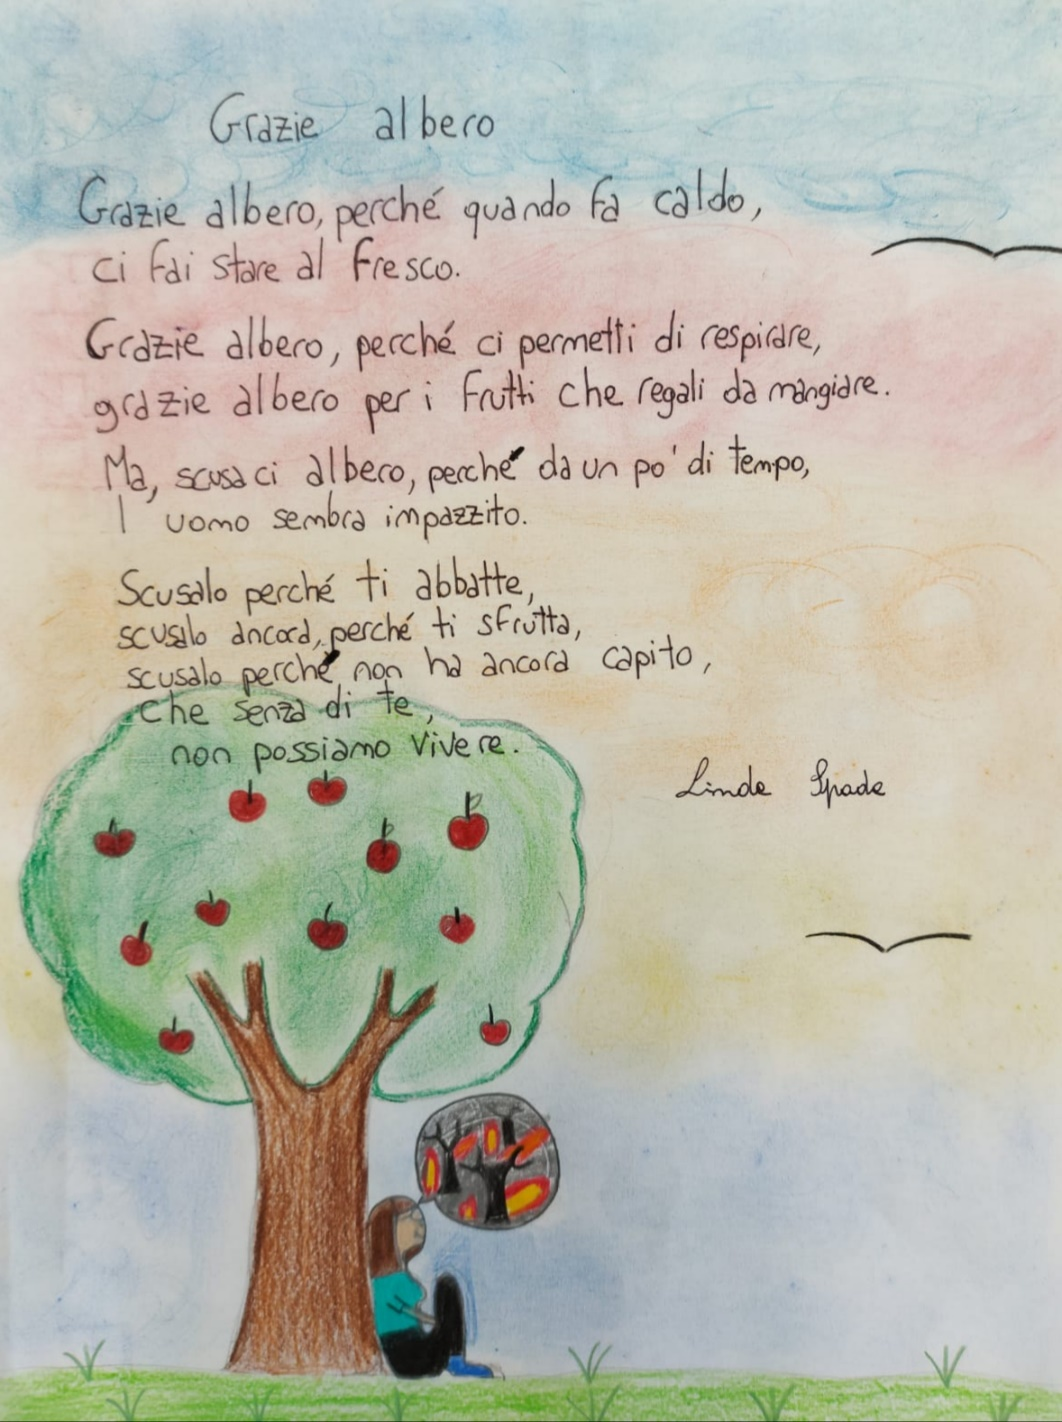 Grazie albero
Grazie albero, perché quando fa caldo,
ci fai stare al fresco.
Grazie albero, perché ci permetti di respirare,
grazie albero per i frutti che regali da mangiare.
Ma, scusaci albero, perché da un po' di tempo,
l'uomo sembra impazzito.
Scusalo perché ti abbatte,
scusalo ancora, perché ti sfrutta,
scusalo perché non ha ancora capito,
che senza di te,
non possiamo vivere.
Linda Spada